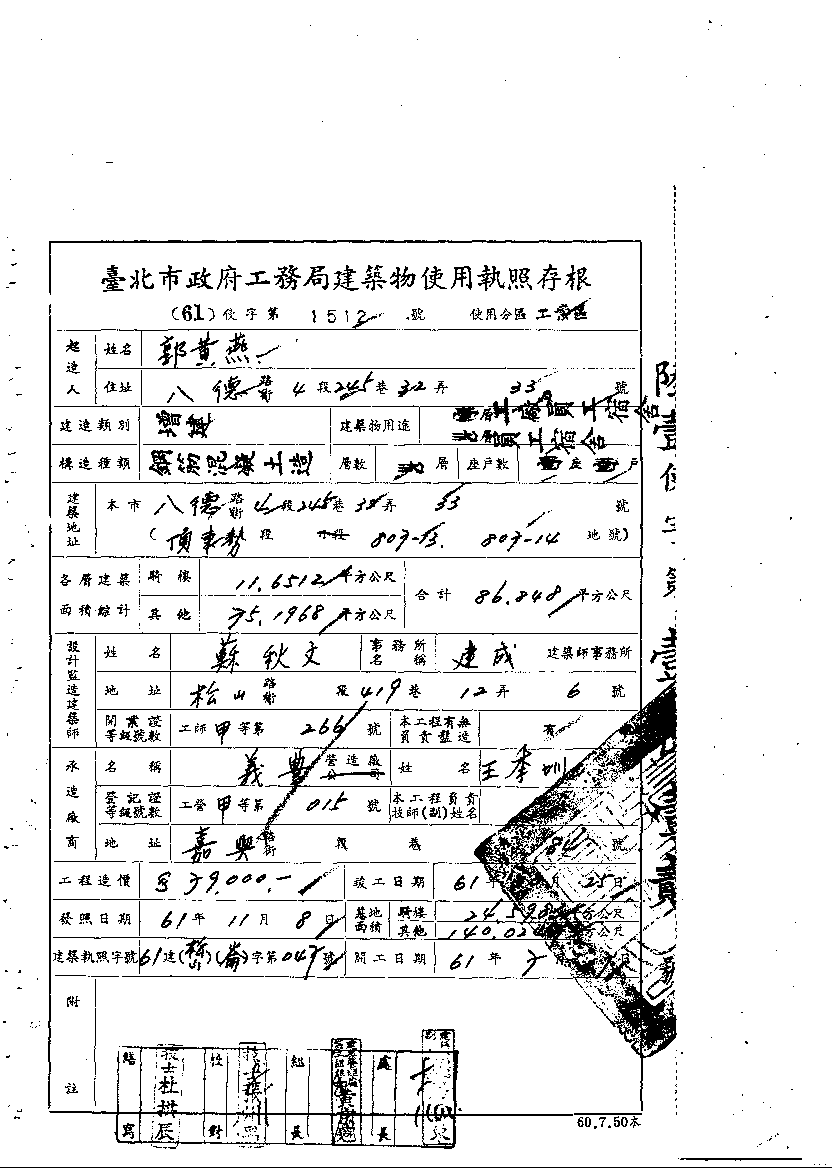 臺北市政府工務局建築物使用執照存根
(61)使字第 1512 號 使用分區 工業區
起造人 姓名 郭黃燕
住址 八德路街 4段245巷32弄 33 號
建造類別 增建 建築物用途 層工廠員工宿舍
層員工宿舍
構造種類 鋼筋混凝土造 層數 層 座戶數 座 戶
建築地址 本市 八德路街4段245巷32弄 33 號
(頂東勢段 小段 807-13. 807-14 地號)
各層建築面積總計 騎樓 11.6512平方公尺 合計 86.848平方公尺
其他 75.1968平方公尺
設計監造建築師 姓名 蘇秋文 事務所名稱 建成 建築師事務所
地址 松山路街 段419巷 12弄 6號
開業證等級號數 工師甲等第 266 號 本工程有無負責監造 有
承造廠商 名稱 義豐營造廠公司 姓名 王李圳
登記證等級號數 工營甲等第 015 號 本工程負責技師(副)姓名
地址 嘉興路街 段 巷 184號
工程造價 79,000.- 竣工日期 61年 月25日
發照日期 61年11月8日 基地面積 騎樓 24.598 平方公尺
其他 140.024 平方公尺
建築執照字號 61建(松山)(崙)字第047號 開工日期 61年7月 日
附註
繕寫 技士杜拱辰 校對 技 組長 處長
60.7.50本